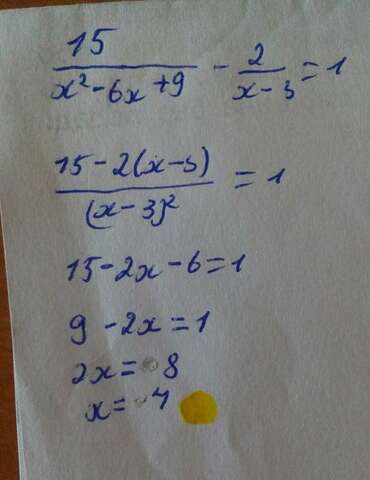 15/(x²-6x+9) - 2/(x-3) = 1
(15-2(x-3))/(x-3)² = 1
15-2x-6=1
9-2x=1
2x=8
x=4